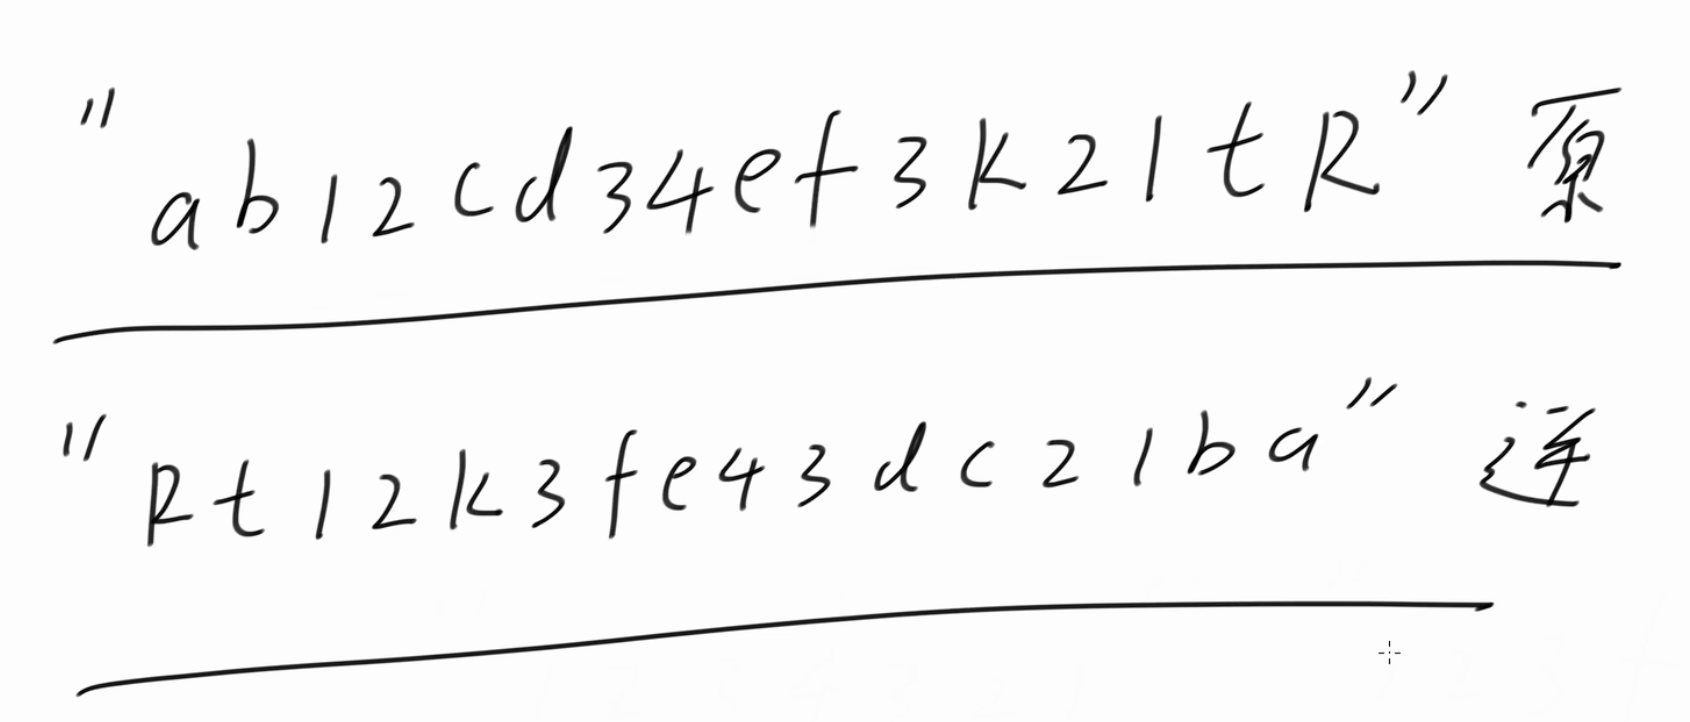 "ab12cd34ef3k21tR" 原
"Rt12k3fe43dc21ba" 逆